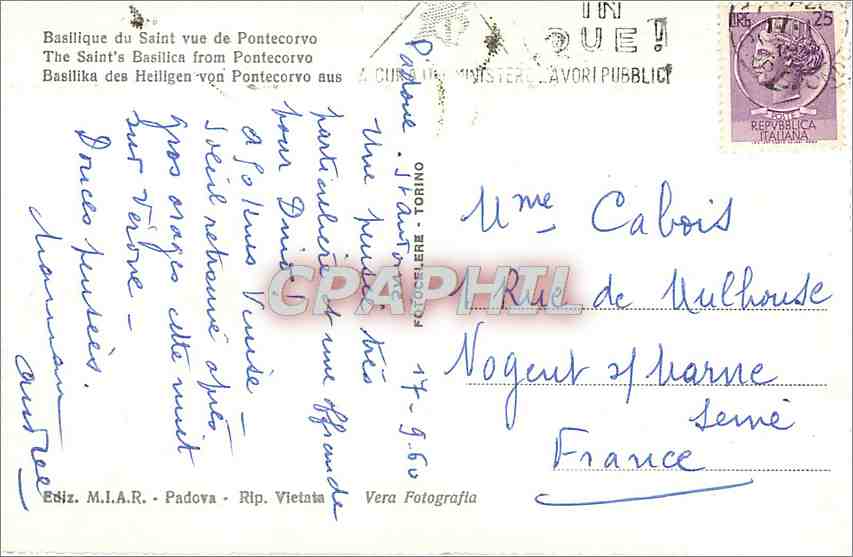 Basilique du Saint vue de Pontecorvo
The Saint's Basilica from Pontecorvo
Basilika des Heiligen von Pontecorvo aus
IN
QUE!
A CURA MINISTERO LAVORI PUBBLICI
LIRE 25
POSTE
REPVBBLICA
ITALIANA
Padoue. St Antoine 17-9-60
Une pensée très
particulière et une offrande
pour Dino!
à 90 kms Venise -
Soleil retrouvé après
gros orages cette nuit
sur Vérone -
Douces pensées.
Maman
Andrée
FOTOCELERE - TORINO
CPAPHIL
Mme. Cabois
1 Rue de Mulhouse
Nogent s/ Marne
Seine
France
Ediz. M.I.A.R. - Padova - Rip. Vietata
Vera Fotografia